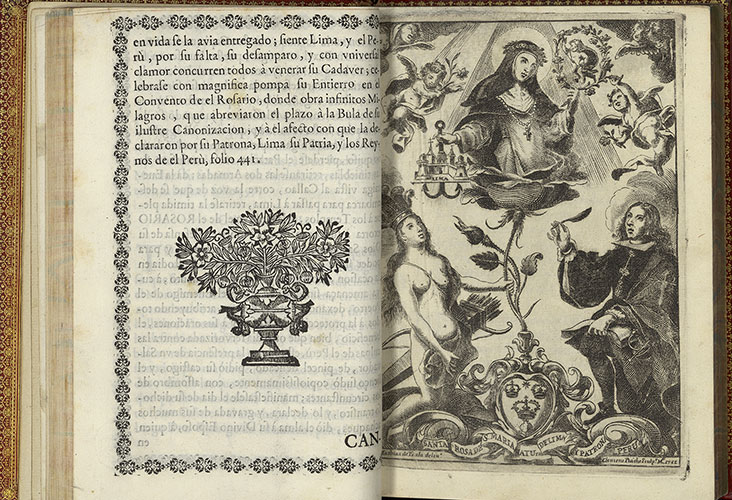 en vida se la avia entregado; siente Lima, y el Pe-
rù, por su falta, su desamparo, y con vniversal
clamor concurren todos à venerar su Cadaver; ce-
lebrase con magnifica pompa su Entierro en el
Convento de el Rosario, donde obra infinitos Mi-
lagros, que abreviaron el plazo à la Bula de su
ilustre Canonizacion, y à el afecto con que la de-
clararon por su Patrona, Lima su Patria, y los Rey-
nos de el Perù, folio 441.
CAN-
LIMA
SANTA ROSA DE S. MARIA NATU DE LIMA Y PATRONA PERU
Clemens Puiche Sculp.